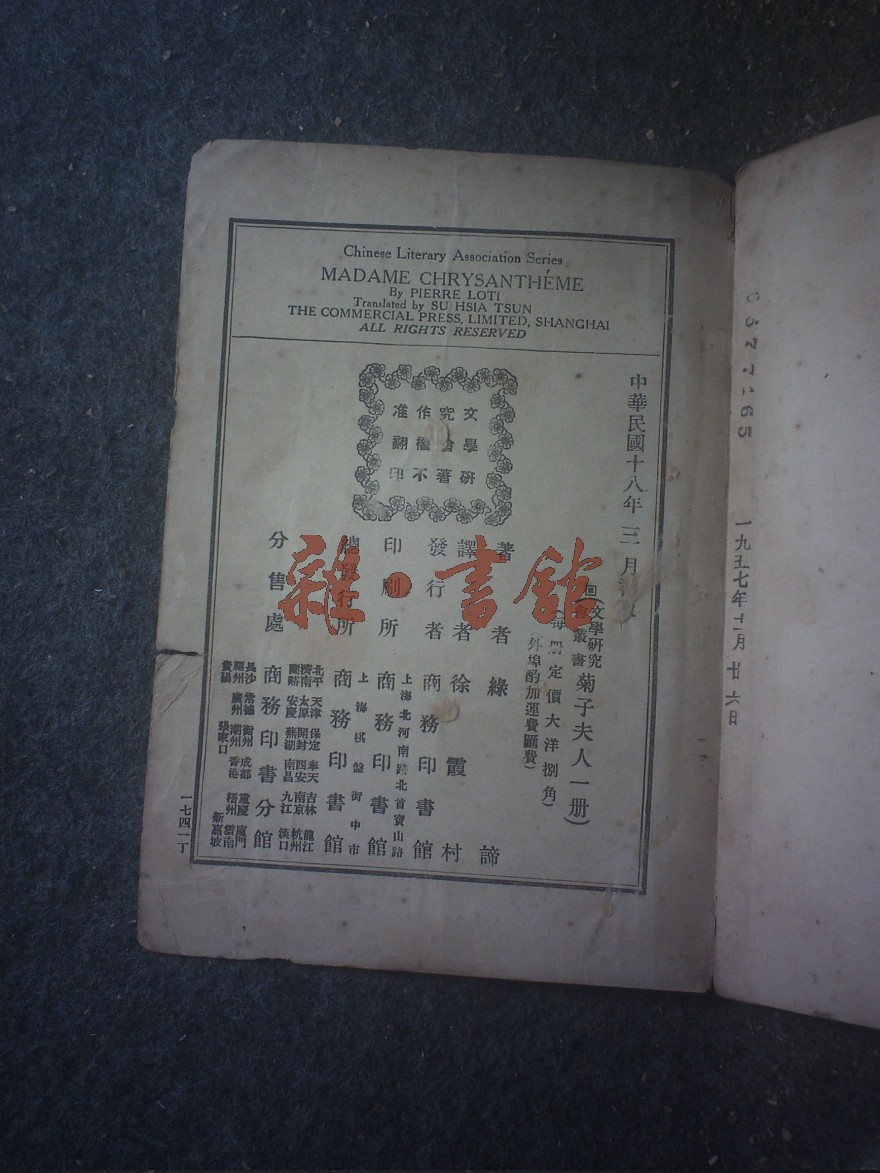 Chinese Literary Association Series
MADAME CHRYSANTHÉME
By PIERRE LOTI
Translated by SU HSIA TSUN
THE COMMERCIAL PRESS, LIMITED, SHANGHAI
ALL RIGHTS RESERVED
中華民國十八年三月初版
文學研
究會著
作權不
准翻印
文學研究
會叢書
菊子夫人一册
每册定價大洋捌角
外埠酌加運費匯費
著者 綠諦
譯者 徐霞村
發行者 商務印書館
上海北河南路北首寶山路
印刷所 商務印書館
上海棋盤街中市
總發行所 商務印書館
北平 天津 保定 奉天 吉林 龍江
濟南 太原 開封 西安 南京 杭州
蘭谿 安慶 蕪湖 南昌 九江 漢口
分售處 商務印書分館
長沙 常德 衡州 成都 重慶 廈門
福州 廣州 潮州 香港 梧州 雲南
貴陽 張家口 新嘉坡
一七四一丁
一九五七年 月廿六日
雜·書館